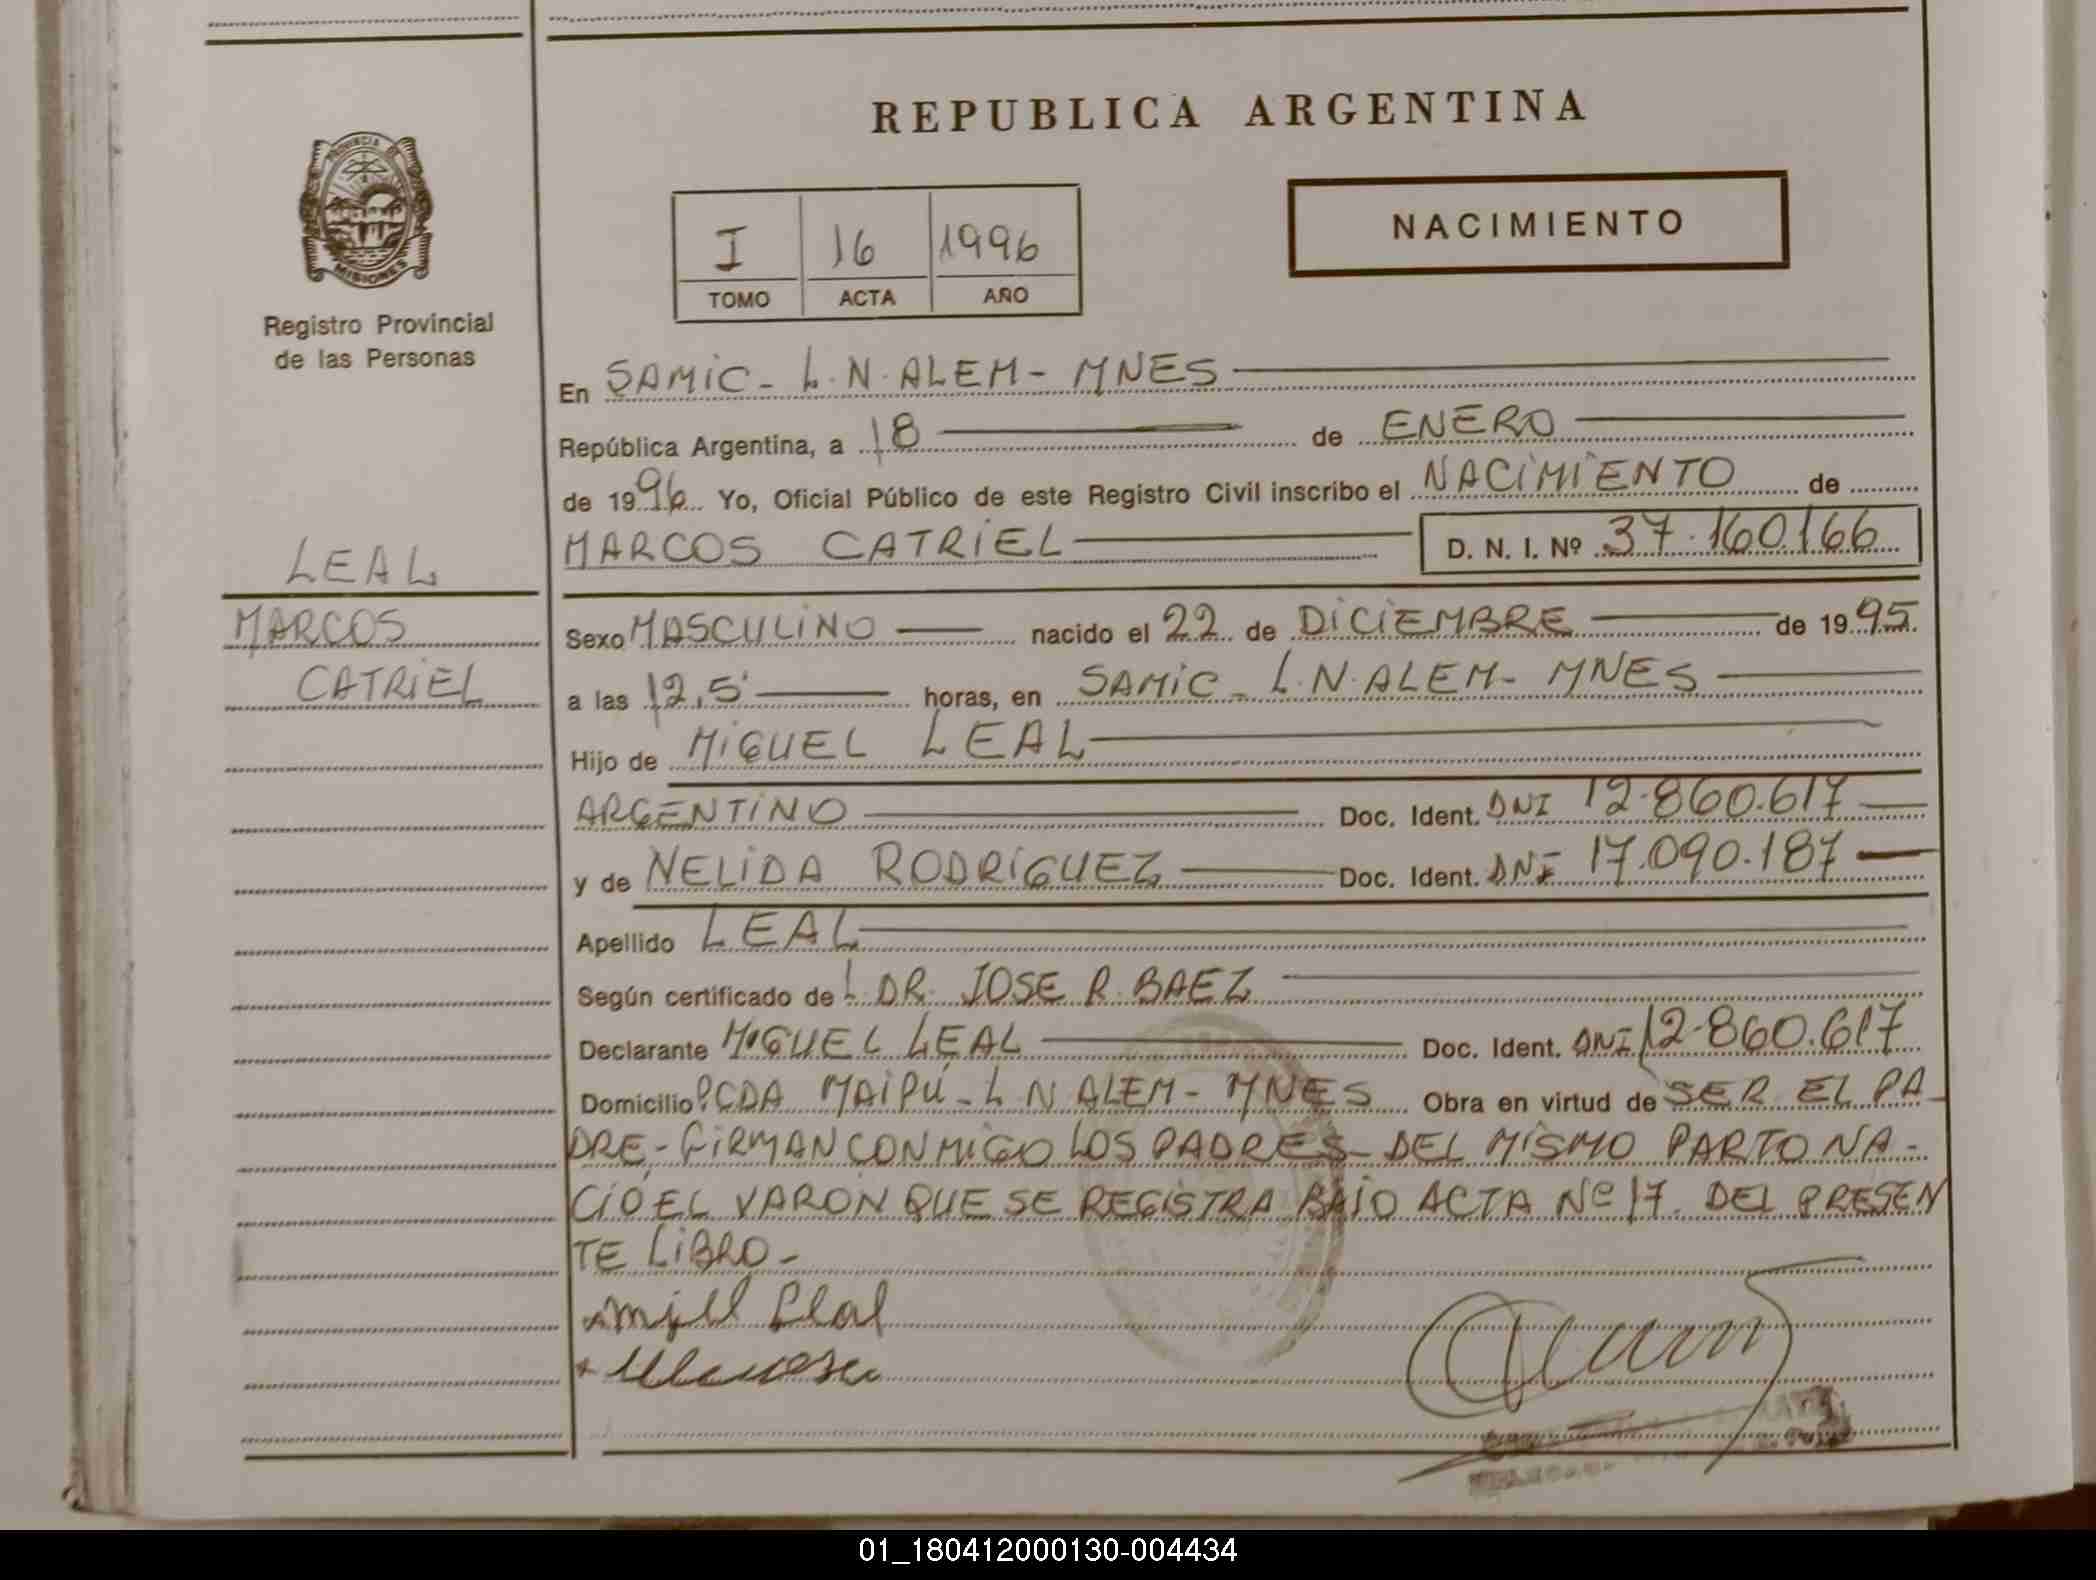 REPUBLICA ARGENTINA
PROVINCIA DE
MISIONES
Registro Provincial
de las Personas
I 16 1996
TOMO ACTA AÑO
NACIMIENTO
En SAMIC - L.N. ALEM - MNES
República Argentina, a 18 de ENERO
de 1996 Yo, Oficial Público de este Registro Civil inscribo el NACIMIENTO de
MARCOS CATRIEL D. N. I. Nº 37.160.166
LEAL
MARCOS
CATRIEL
Sexo MASCULINO nacido el 22 de DICIEMBRE de 1995.
a las 12,5' horas, en SAMIC - L.N. ALEM - MNES
Hijo de MIGUEL LEAL
ARGENTINO Doc. Ident. DNI 12.860.617
y de NELIDA RODRIGUEZ Doc. Ident. DNI 17.090.187
Apellido LEAL
Según certificado de L. DR. JOSE R. BAEZ
Declarante MIGUEL LEAL Doc. Ident. DNI 12.860.617
Domicilio PCDA MAIPÚ - L N ALEM - MNES Obra en virtud de SER EL PA-
DRE - FIRMAN CONMIGO LOS PADRES - DEL MISMO PARTO NA-
CIÓ EL VARON QUE SE REGISTRA BAJO ACTA Nº 17. DEL PRESEN
TE LIBRO -
Leal
01_180412000130-004434